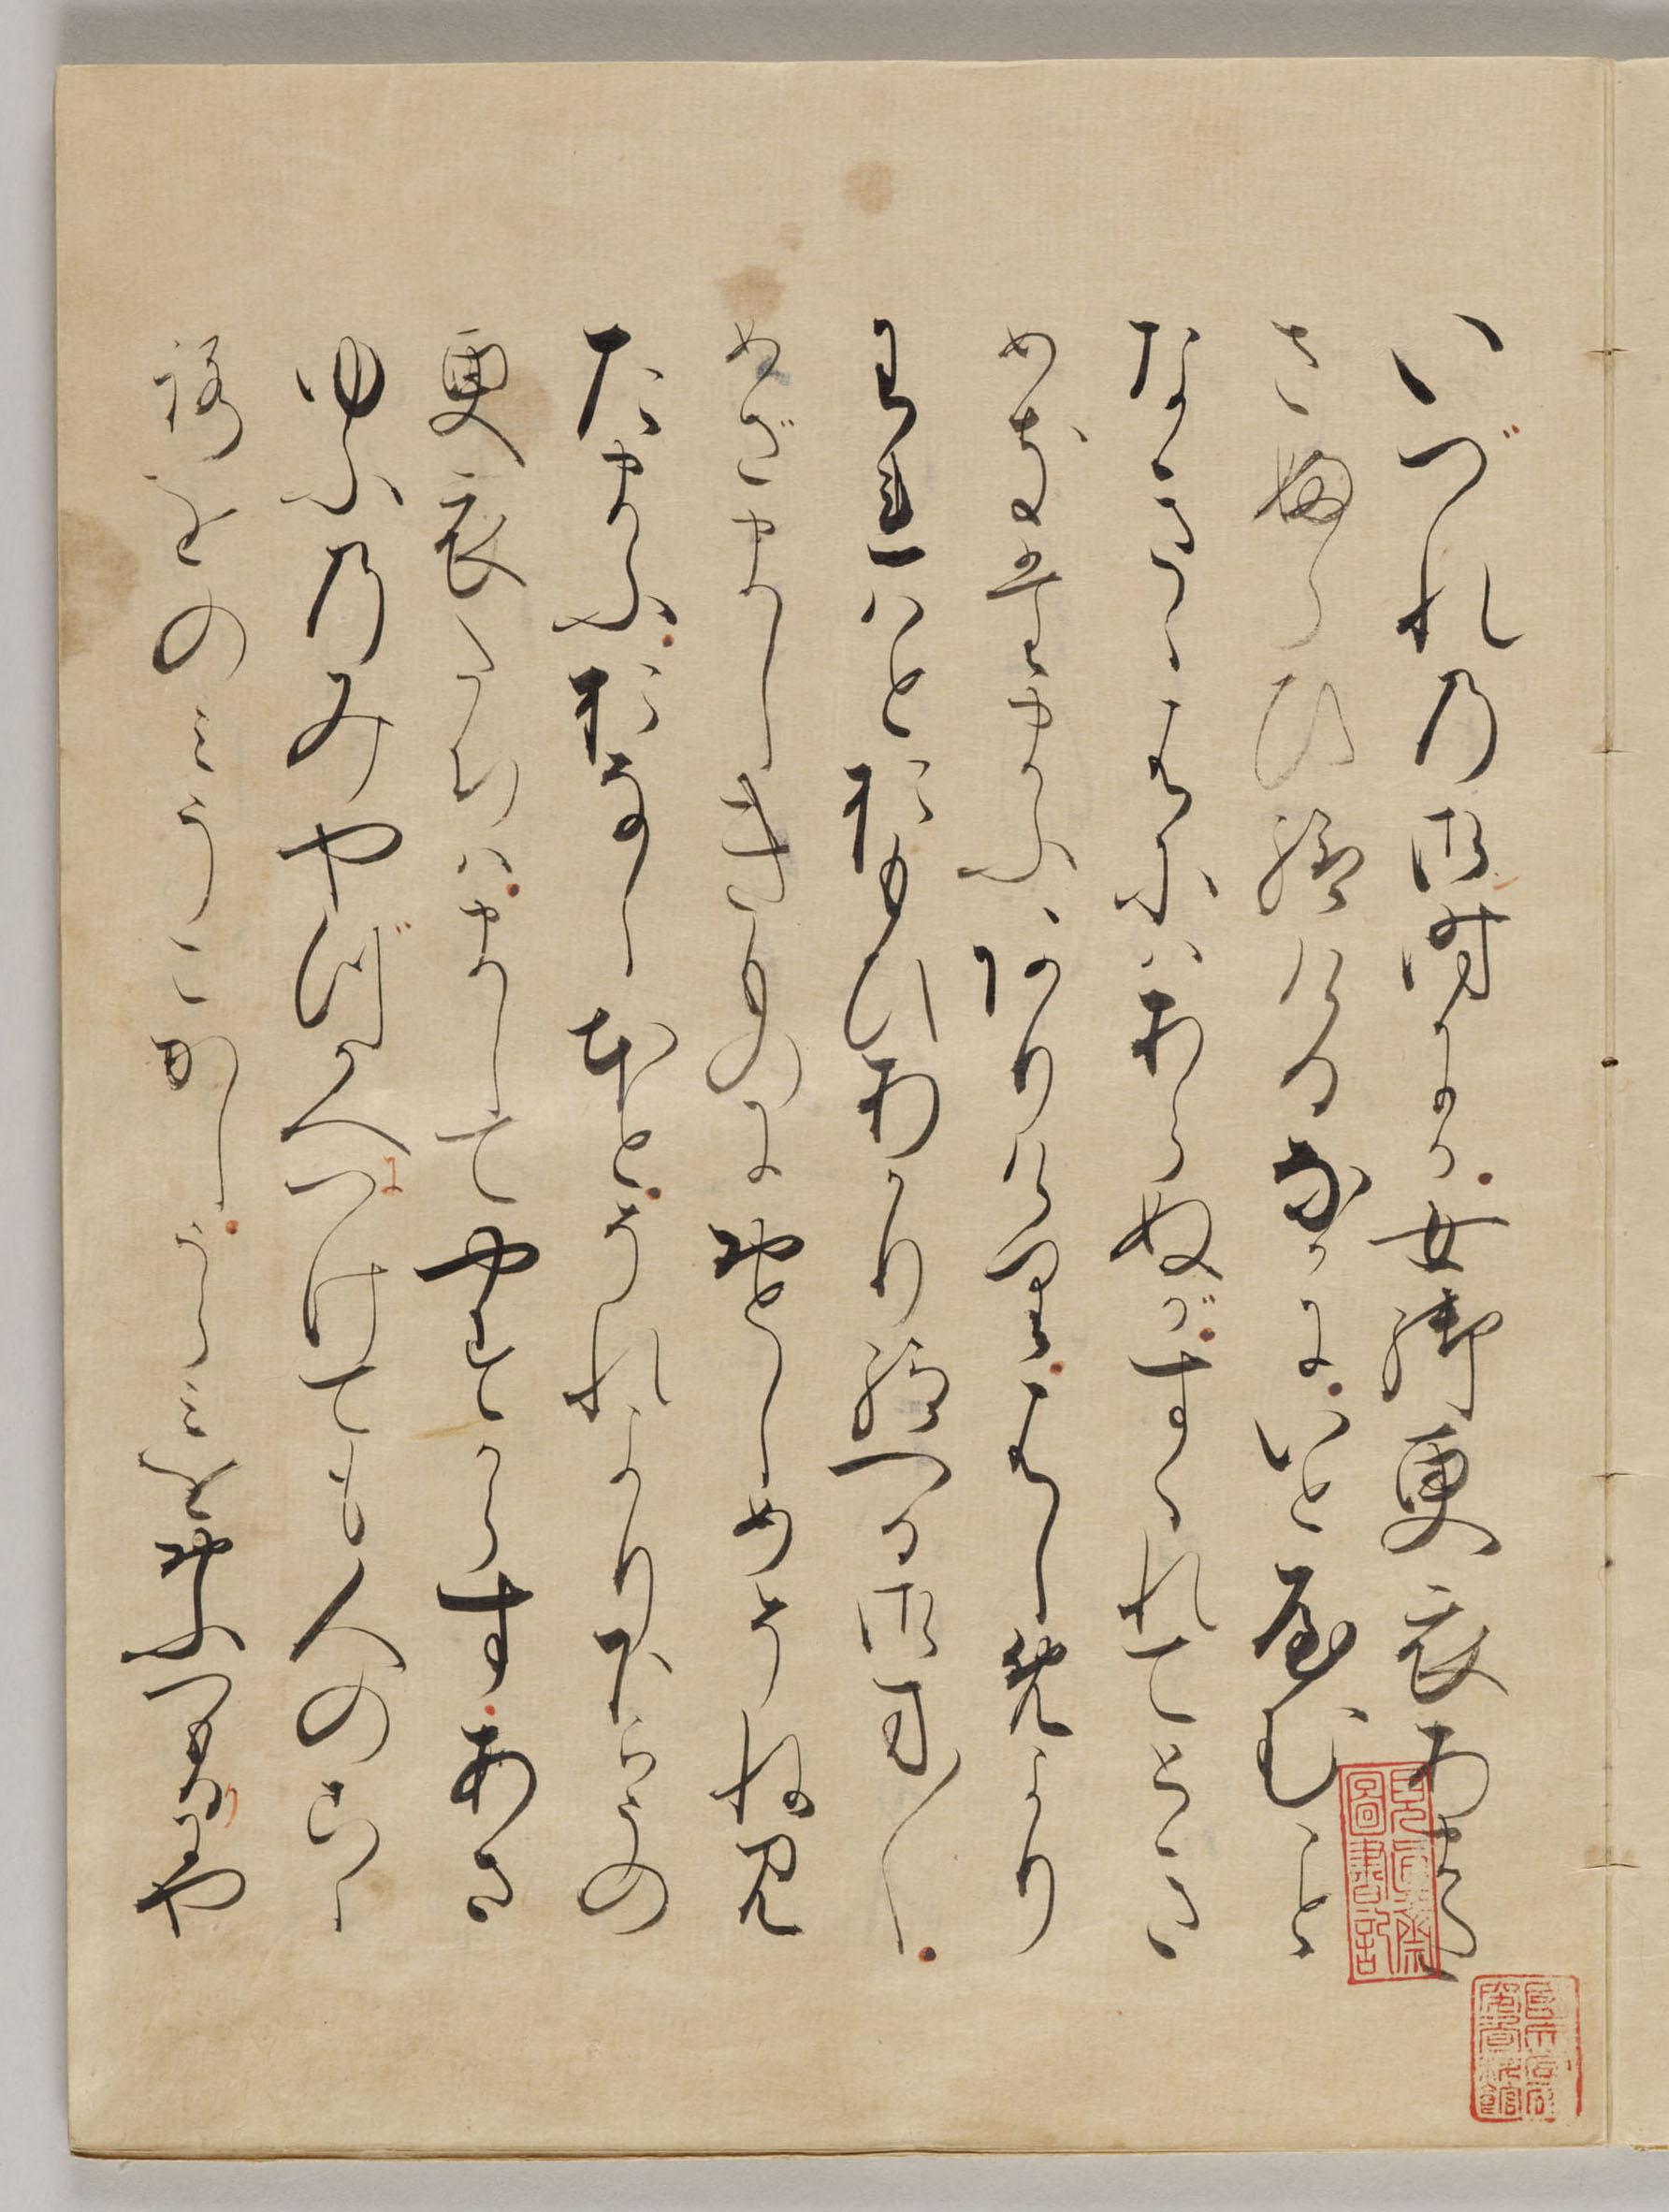 いづれの御時にか女御更衣あまた
さふらひ給けるなかにいとやむこと
なきゝはにはあらぬがすくれてとき
めきたまふありけりはしめより
われはとおもひあかり給へる御かた〱
めざましきものにおとしめそねみ
たまふおなしほとそれより下らうの
更衣たちはましてやすからすあさ
ゆふのみやづかへにつけても人のこゝ
ろをのみうこかしうらみをおふつもりにや